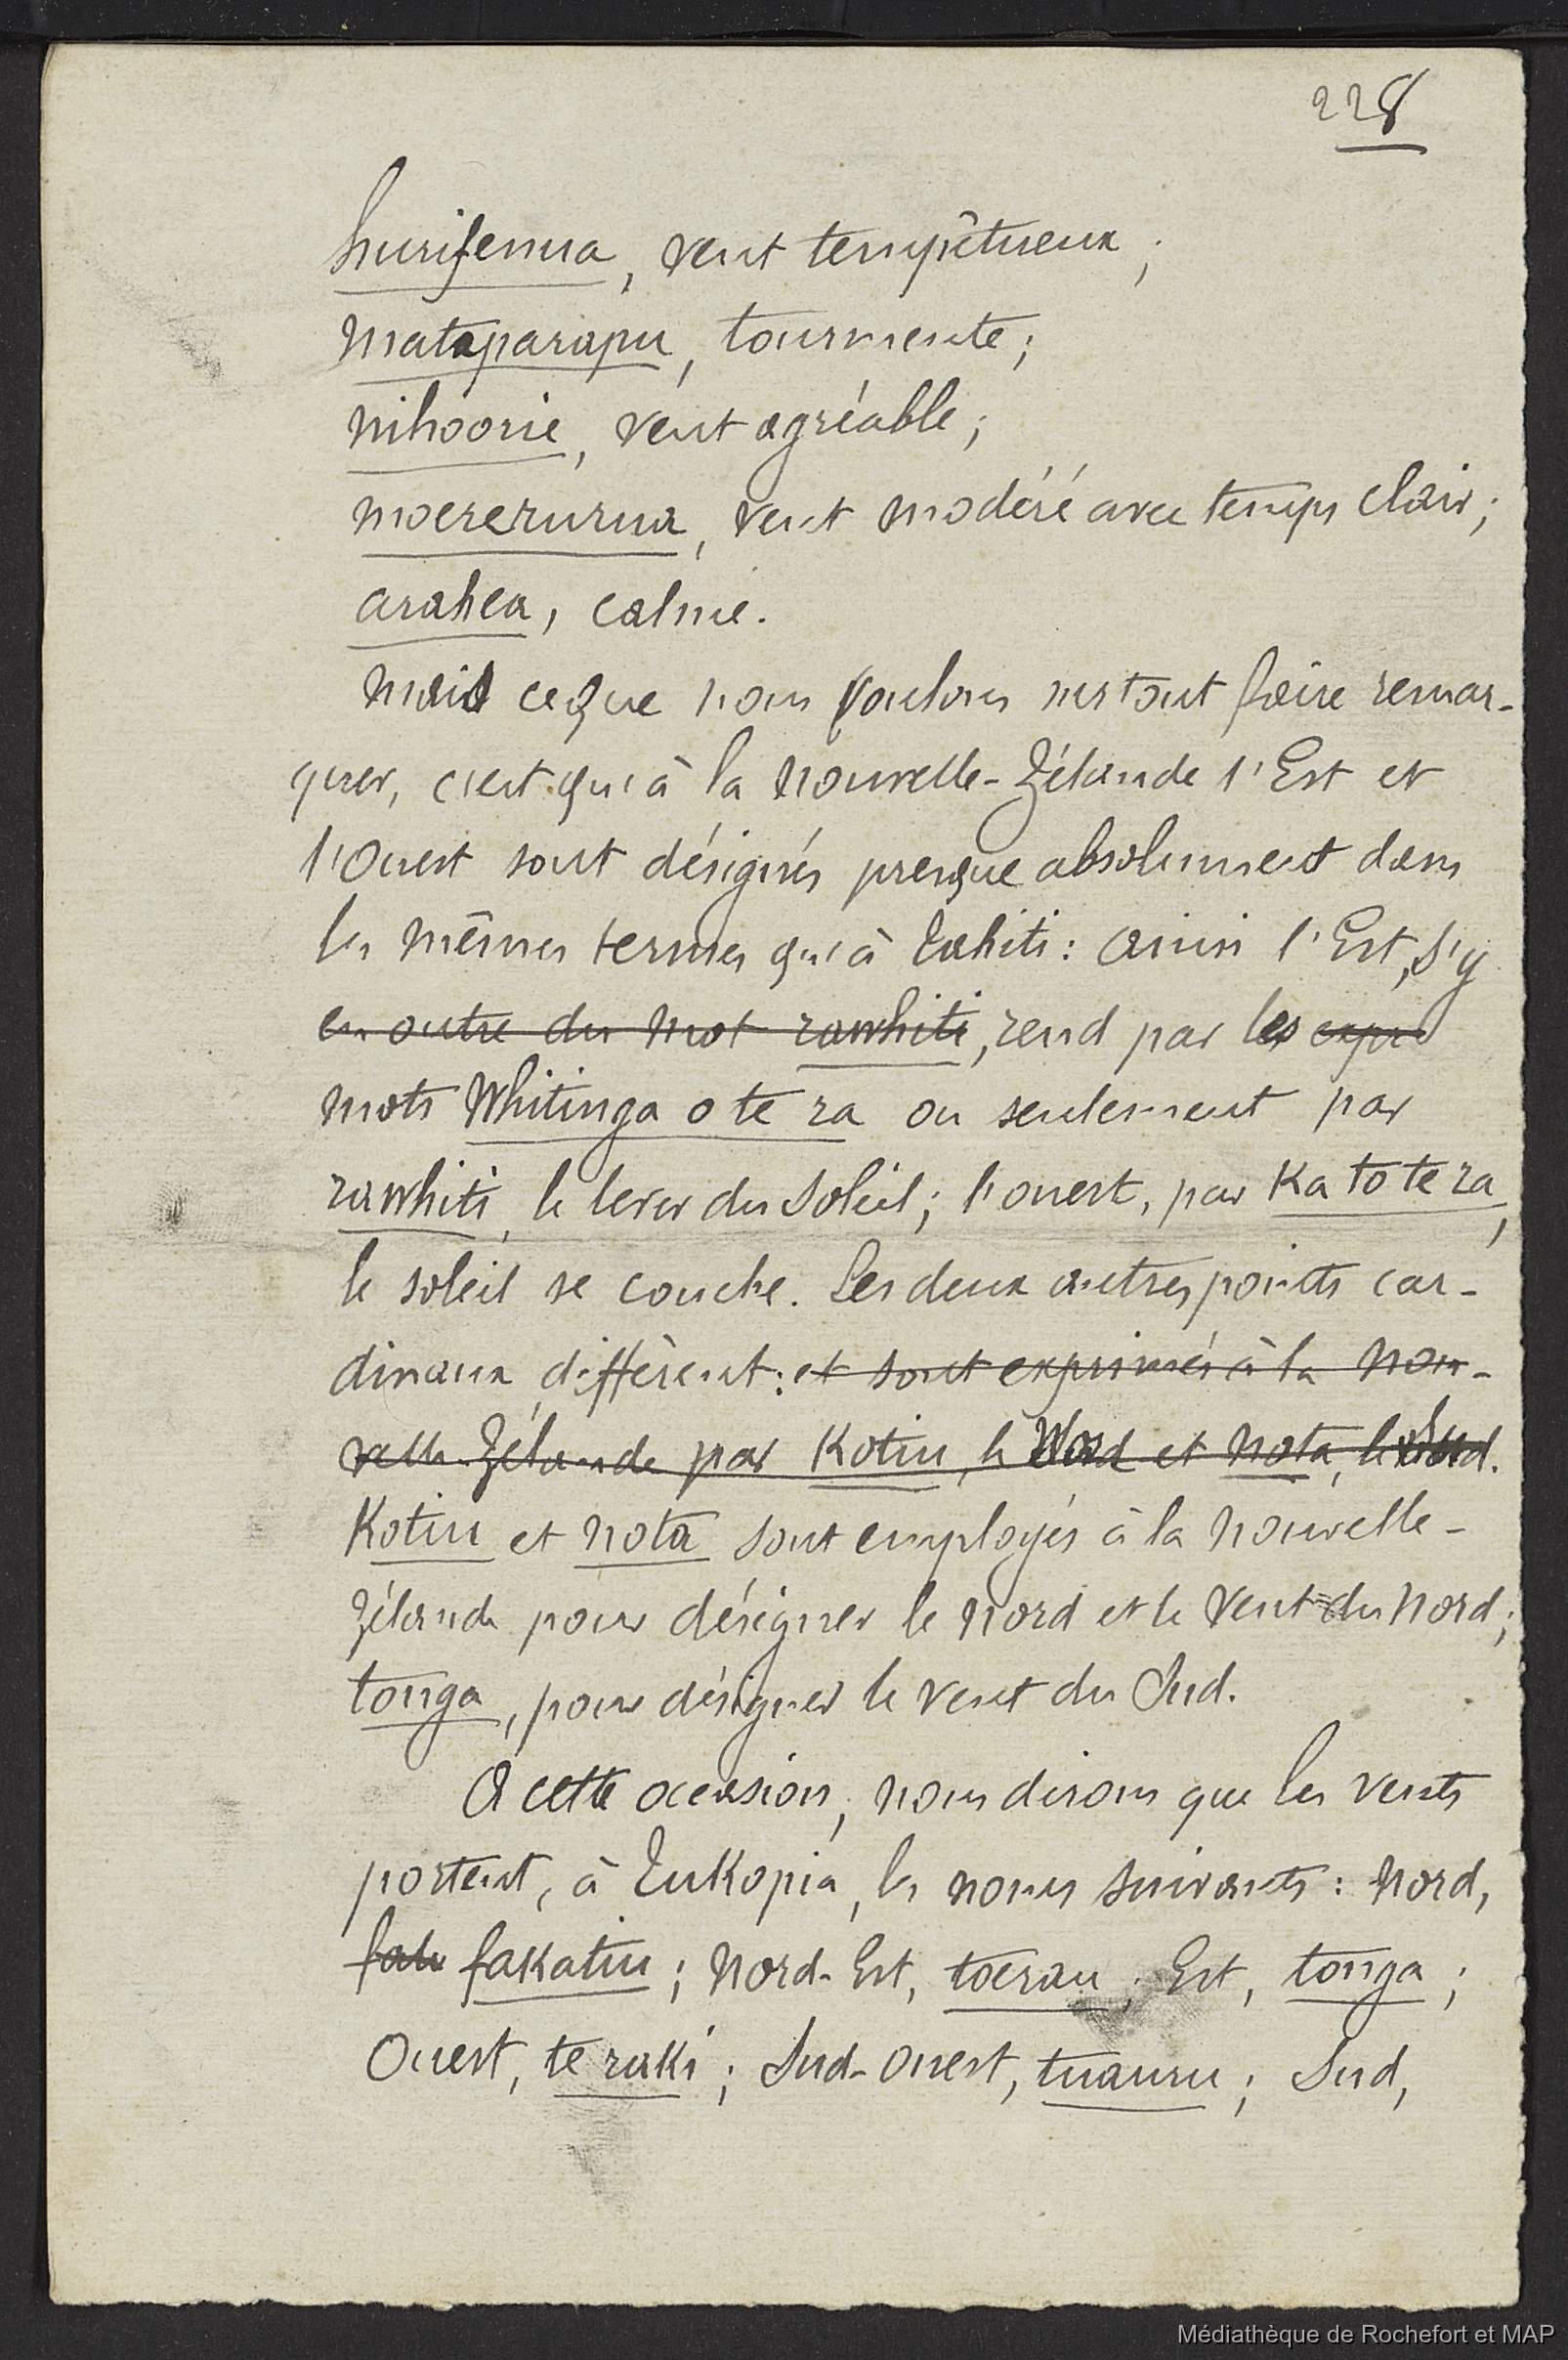 228
hurifenua, vent tempêtueux;
mataparapu, tourmente;
nihoorie, vent agréable;
moererurua, vent modéré avec temps clair;
arahea, calme.
Mais ce que nous voulons surtout faire remar-
quer, c'est qu'à la Nouvelle-Zélande l'Est et
l'Ouest sont désignés presque absolument dans
les mêmes termes qu'à Tahiti: ainsi l'Est, s'y
en outre du mot rawhiti, rend par les expre
mots Whitinga o te ra ou seulement par
rawhiti, le lever du soleil; l'ouest, par Ka to te ra,
le soleil se couche. Les deux autres points car-
dinaux diffèrent: et sont exprimés à la Nou-
velle-Zélande par Kotiu, le Nord et nota, le Sud.
Kotiu et nota sont employés à la Nouvelle-
Zélande pour désigner le Nord et le vent du Nord;
tonga, pour désigner le vent du Sud.
A cette occasion, nous dirons que les vents
portent, à Tukopia, les noms suivants: Nord,
fak fakatiu; Nord-Est, toerau; Est, tonga;
Ouest, te raki; Sud-Ouest, tuauru; Sud,
Médiathèque de Rochefort et MAP